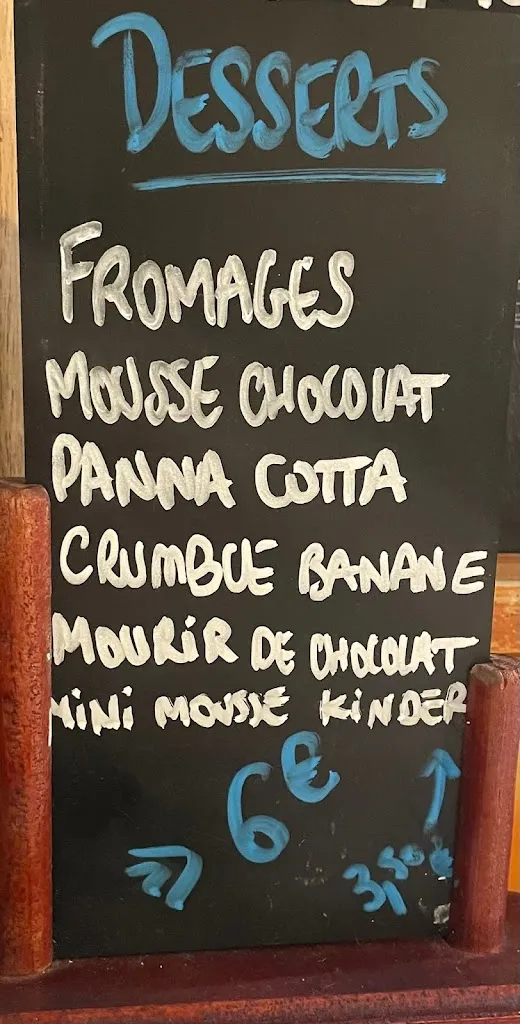 DESSERTS
FROMAGES
MOUSSE CHOCOLAT
PANNA COTTA
CRUMBLE BANANE
MOURIR DE CHOCOLAT
MINI MOUSSE KINDER
6€
3,50€